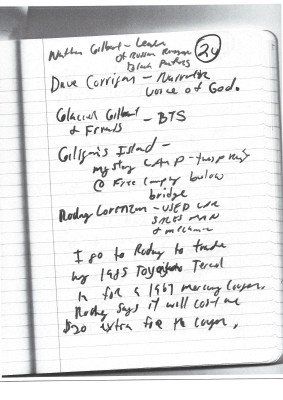 Nathan Gilbert - Leader
of Russian Revenge
Black Panthers
24
Dave Corrigan - Narrator
voice of God.
Glacial Gilbert - BTS
& Friends
Giligan's Island -
mystery CAMP -
@ Free Camp below
bridge
Rodny - USED CAR
SALES MAN
& mechanic
I go to Rodny to trade
my 1985 Toyota Tercel
in for a 1967 mercury Couger.
Rodny says it will cost me
$20 extra for the couger.